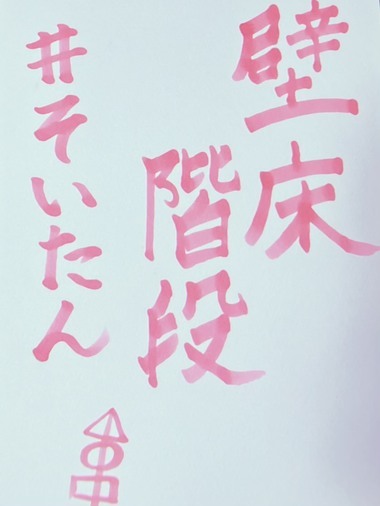 壁床
階段
#そいたん